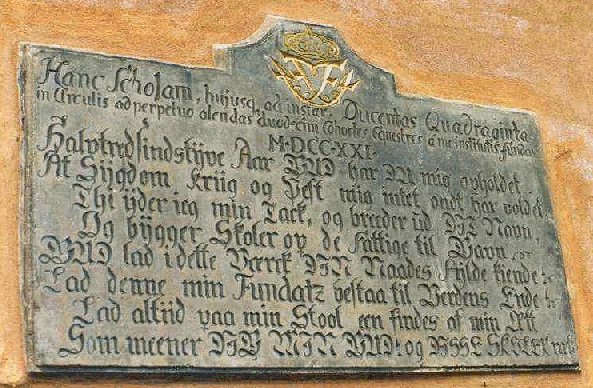 Hanc Scholam, hujusq, ad instar, Ducentas Quadraginta
in Circulis ad perpetuo alendas duodecim cohortes equestres a me institutis fundavi
M·DCC·XXI·
Halvtredsindstÿve Aar GUD har DU mig opholdet
At Sÿgdom krüg og Pest mig intet ondt har voldet
Thi ÿder ieg min Tack, og breeder üd DIT Navn
Og bÿgger Skoler op de fattige til Gavn
GUD lad i dette Værck DIN Naades Fÿlde kiende
Lad denne min Fundatz bestaa til Verdens Ende
Lad altid paa min Stool een findes af min Æt
Som meener DIG MIN GUD og